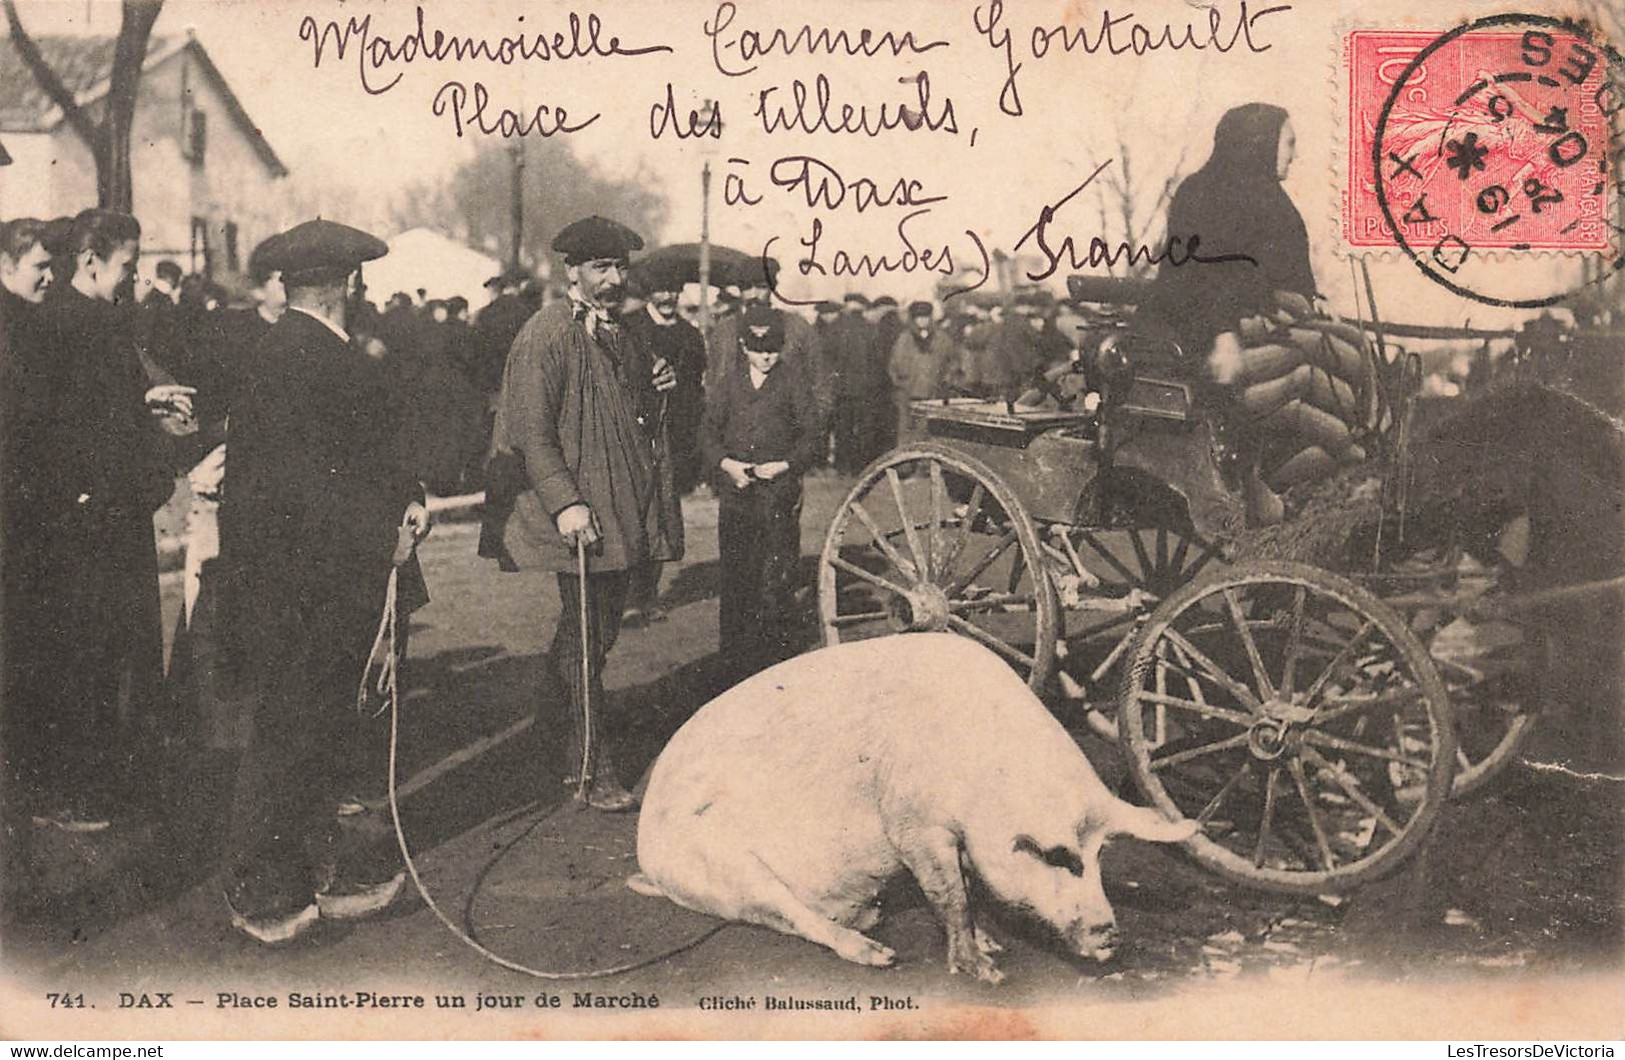 Mademoiselle Carmen Gontault
Place des tilleuils,
à Dax
(Landes) France
10c
RÉPUBLIQUE FRANÇAISE
POSTES
DAX
741. DAX — Place Saint-Pierre un jour de Marché Cliché Balussaud, Phot.
LesTresorsDeVictoria